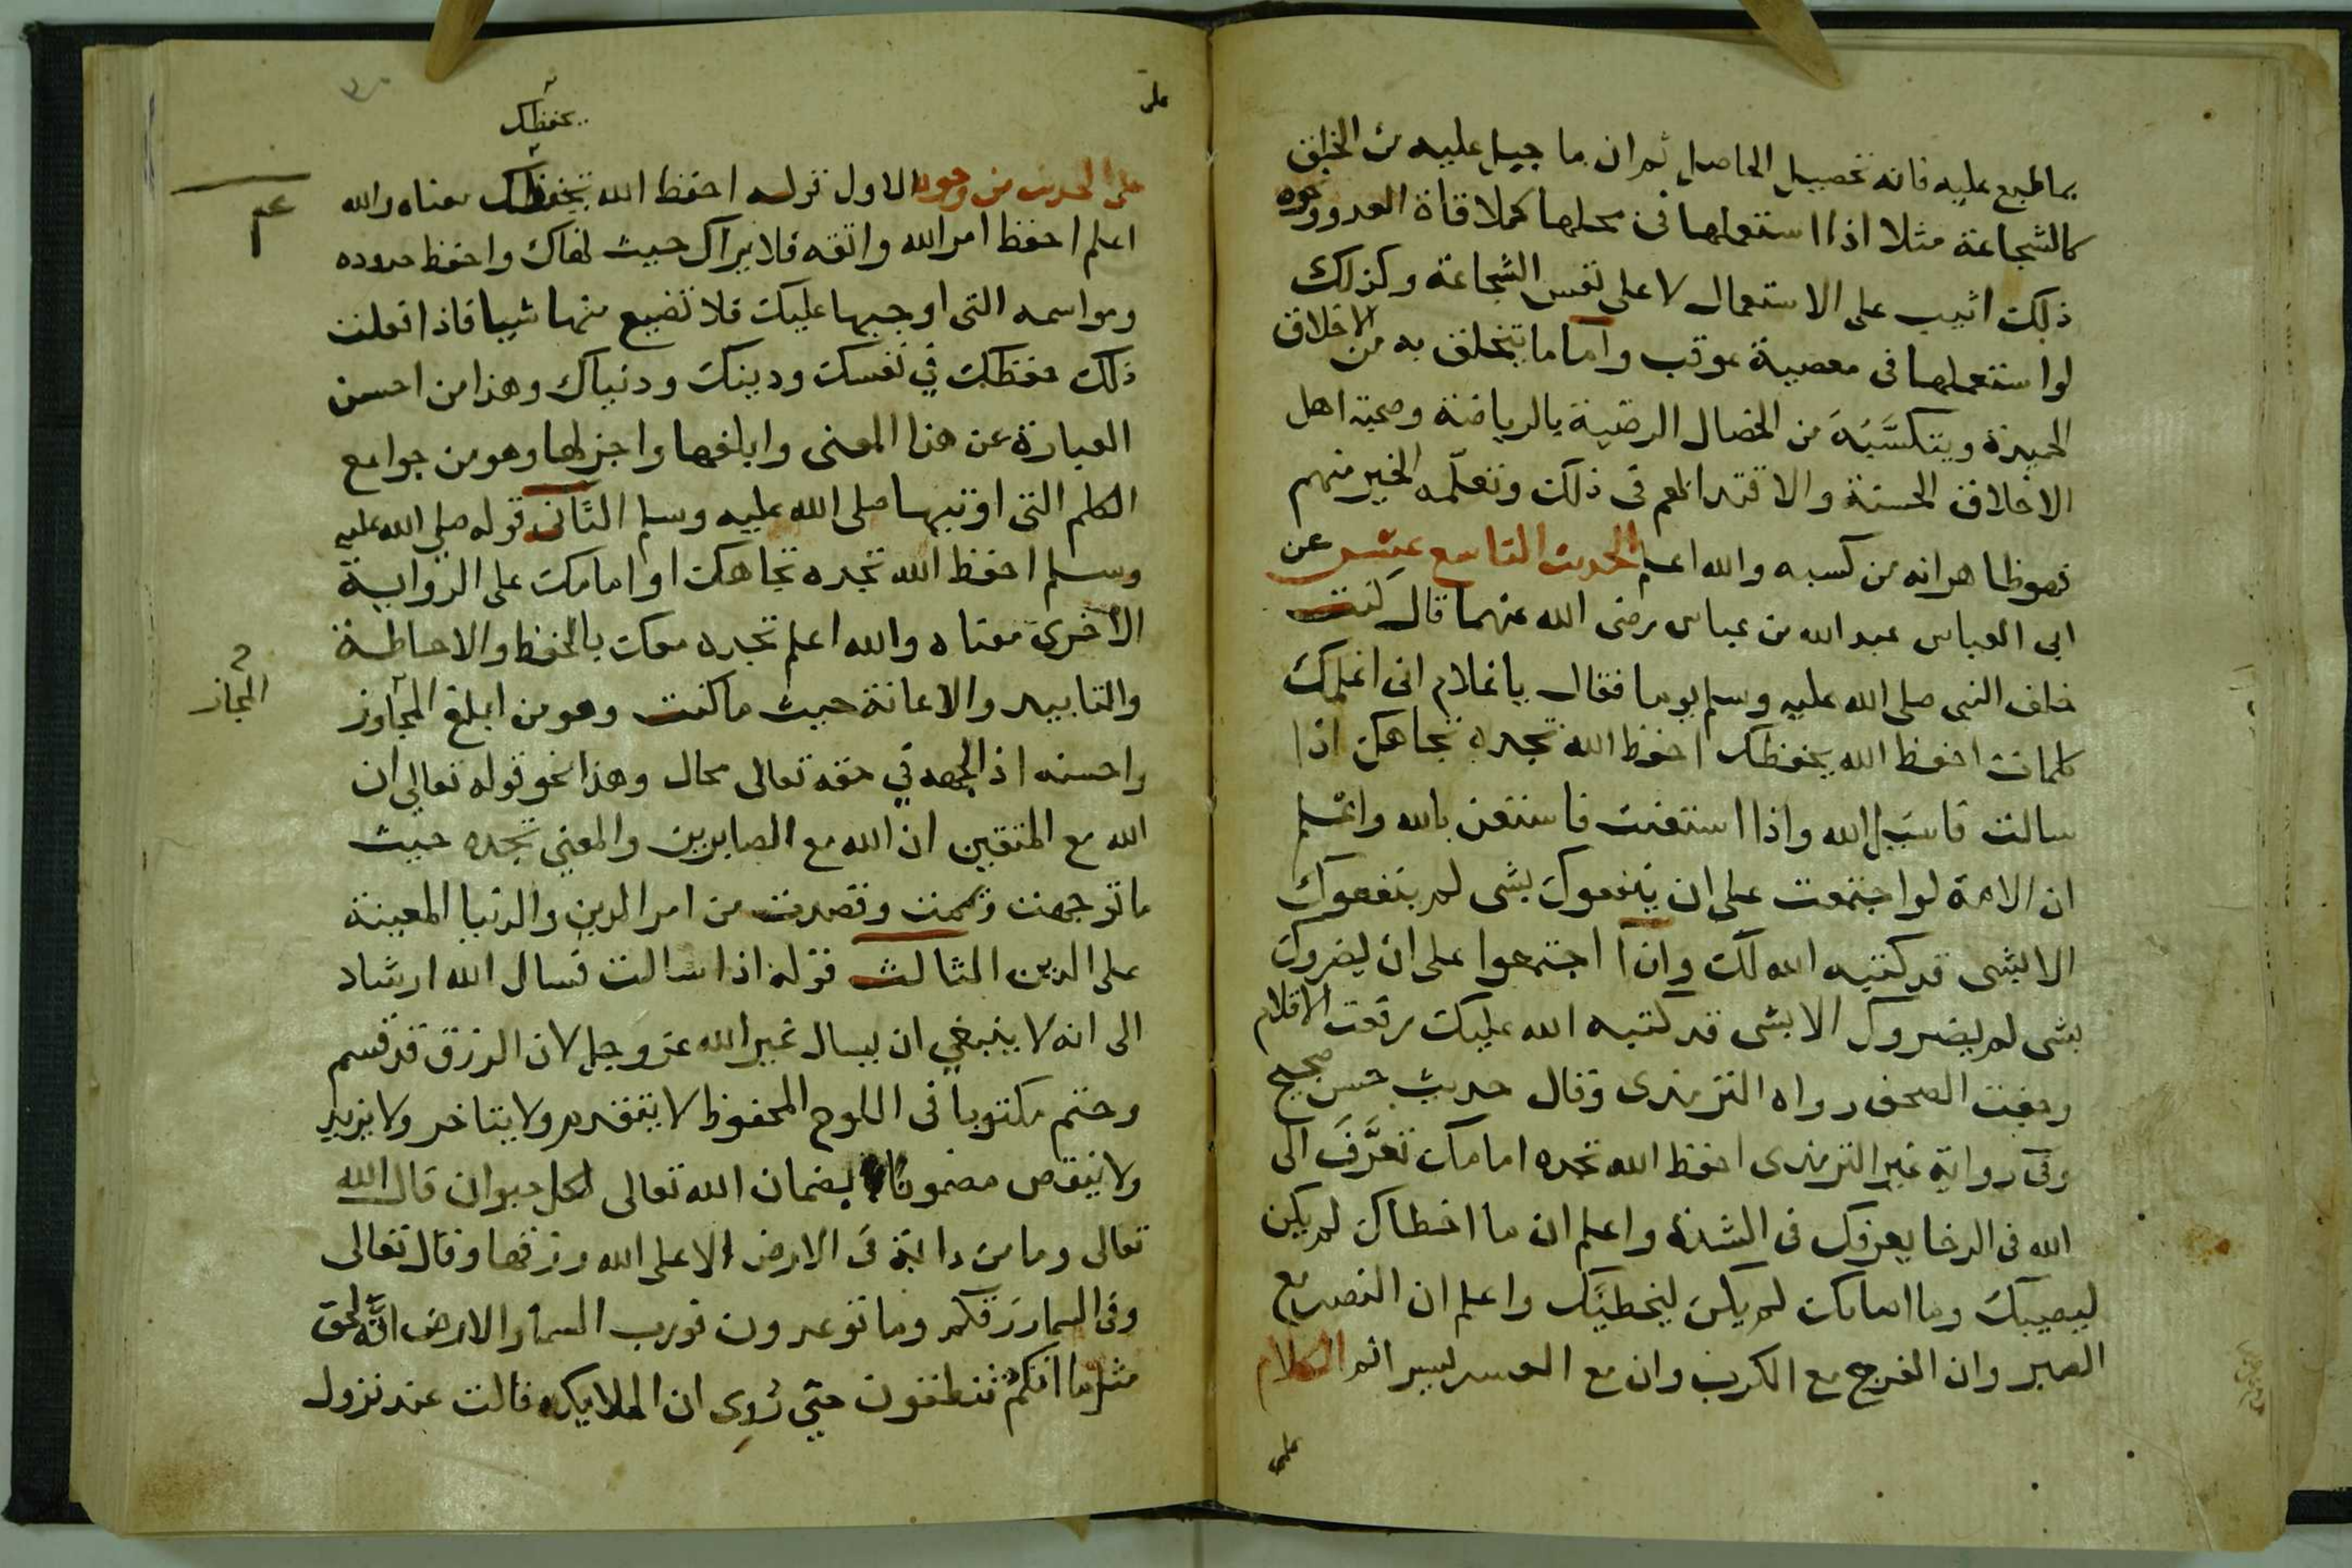 بما طبع عليه فانه تحصيل الحاصل ثم ان ما جبل عليه من الخلق
كالشجاعة مثلا اذا استعملها في محلها كملاقاة العدو ونحوه
ذلك اثيب على الاستعمال لا على نفس الشجاعة وكذلك
لو استعملها في معصية عوقب واما ما يتخلق به من الاخلاق
الحميدة ويتكسَّبُه من الخصال الرضية بالرياضة وصحبة اهل
الاخلاق الحسنة والاقتدا بهم في ذلك وتعلّمه الخير منهم
فهو ظاهر انه من كسبه والله اعلم الحديث التاسع عشر عن
ابي العباس عبد الله من عباس رضى الله عنهما قال كنت
خلف النبى صلى الله عليه وسلم يوما فقال يا غلام انى اعلمك
كلمات احفظ الله يحفظك احفظ الله تجده تجاهك اذا
سالت فاسَئل الله واذا استعنت فاستعن بالله واعلم
ان الامة لو اجتمعت على ان ينفعوك بشى لم ينفعوك
الا بشى قد كتبه الله لك وان اجتمعوا على ان يضروك
بشى لم يضروك الا بشى قد كتبه الله عليك رفعت الاقلام
وجفت الصحف رواه الترمذى وقال حديث حسن صحيح
وفى رواية غير الترمذى احفظ الله تجده امامك تعَّرف الى
الله فى الرخا يعرفك فى الشدة واعلم ان ما اخطاك لم يكن
ليصيبك وما اصابك لم يكن ليخطيَك واعلم ان النصر مع
الصبر وان الفرج مع الكرب وان مع العسر يسرا الكلام
على
على
يحفظك
على الحديث من وجوه الاول قوله احفظ الله يحفظك معناه والله
اعلم احفظ امر الله واتقه فلا يراك حيث نهاك واحفظ حدوده
ومراسمه التى اوجبها عليك فلا تضيع منها شيا فاذا فعلت
ذلك حفظك في نفسك ودينك ودنياك وهذا من احسن
العبارة عن هذا المعنى وابلغها واجزلها وهو من جوامع
الكلم التى اوتيها صلى الله عليه وسلم الثانى قوله صلى الله عليه
وسلم احفظ الله تجده تجاهك او امامك على الرواية
الاخرى معناه والله اعلم تجده معك بالحفظ والاحاطة
والتاييد والاعانة حيث ما كنت وهو من ابلغ المجاوز
المجاز
واحسنه اذ الجهه في حقه تعالى محال وهذا نحو قوله تعالى ان
الله مع المتقين ان الله مع الصابرين والمعنى تجده حيث
ما توجهت وتيممت وقصدت من امر الدين والدنيا المعينة
على الدين الثالث قوله اذا سالت فسال الله ارشاد
الى انه لا ينبغي ان يسال غير الله عز وجل لان الرزق قد قسم
وختم مكتوبا فى اللوح المحفوظ لا يتقدم ولا يتاخر ولا يزيد
ولا ينقص مضمونا بضمان الله تعالى لكل حيوان قال الله
تعالى وما من دابة فى الارض الا على الله رزقها وقال تعالى
وفى السما رزقكم وما توعدون فورب السما والارض انّه لحق
مثل ما انكم تنطقون حتى رُوِى ان الملايكه قالت عند نزول